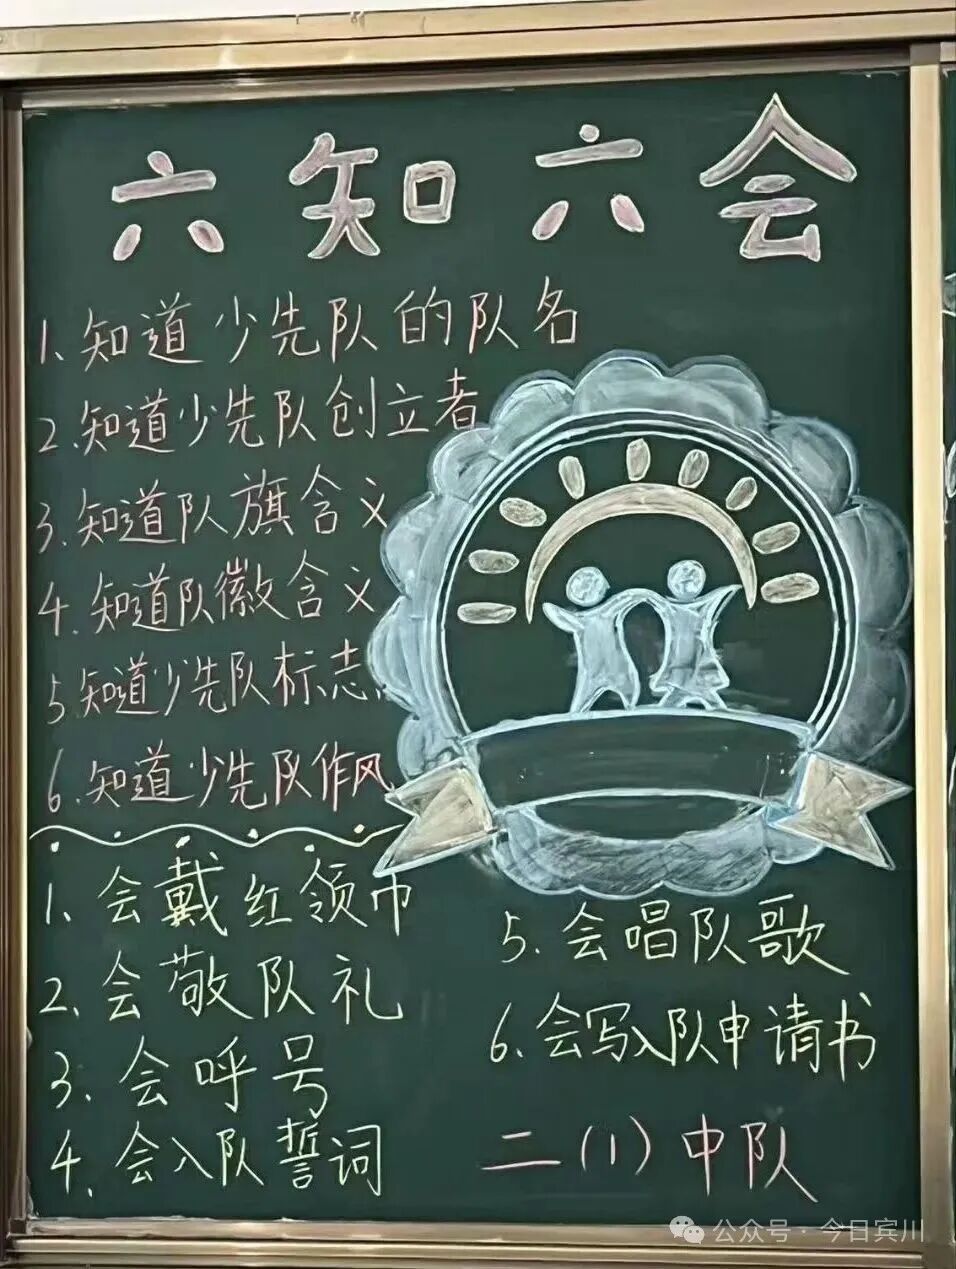 六知六会
1.知道少先队的队名
2.知道少先队创立者
3.知道队旗含义
4.知道队徽含义
5.知道少先队标志
6.知道少先队作风
1.会戴红领巾
2.会敬队礼
3.会呼号
4.会入队誓词
5.会唱队歌
6.会写入队申请书
二(1)中队
公众号·今日宾川